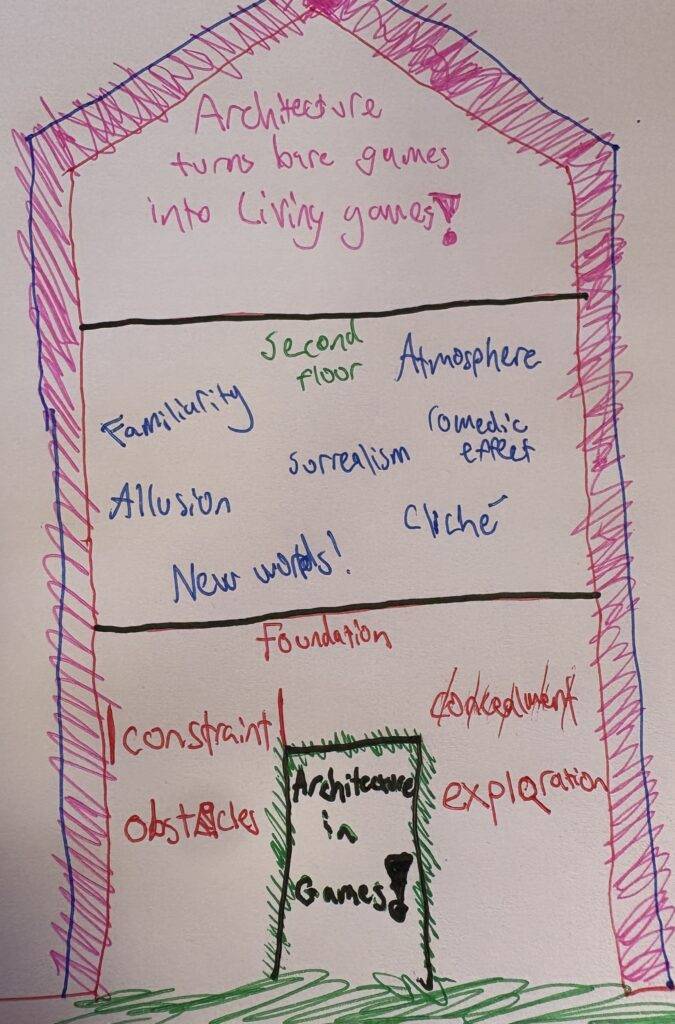 Architecture
turns bare games
into Living games!
Second
floor
Atmosphere
Familiarity
comedic
effect
surrealism
Allusion
Cliché
New worlds!
Foundation
constraint
concealment
obstacles
exploration
Architecture
in
Games!